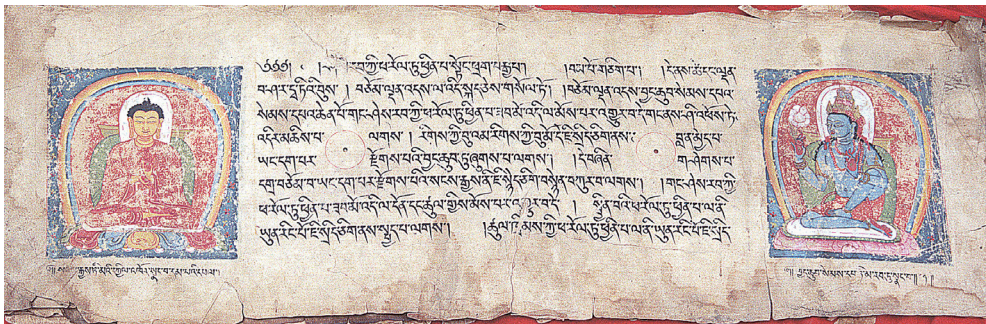 རབ་ཀྱི་ཕ་རོལ་ཏུ་ཕྱིན་པ་སྟོང་ཕྲག་བརྒྱ་པ། །བམ་པོ་གཅིག་པ། །དེ་ནས་ཚེ་དང་ལྡན་
པ་ཤ་ར་དྭ་ཏིའི་བུས། །བཅོམ་ལྡན་འདས་ལ་འདི་སྐད་ཅེས་གསོལ་ཏོ། །བཅོམ་ལྡན་འདས་བྱང་ཆུབ་སེམས་དཔའ་
སེམས་དཔའ་ཆེན་པོ་གང་ཤེས་རབ་ཀྱི་ཕ་རོལ་ཏུ་ཕྱིན་པ་ཟབ་མོ་འདི་ལ་མོས་པར་འགྱུར་བ་དེ་གང་ནས་ཤི་འཕོས་ཏེ་
འདིར་མཆིས་པ་ ལགས། །རིགས་ཀྱི་བུ་འམ་རིགས་ཀྱི་བུ་མོ་དེ་ཇི་སྲིད་ཅིག་ནས་ བླ་ན་མྱེད་པ་
ཡང་དག་པར་ རྫོགས་པའི་བྱང་ཆུབ་ཏུ་ཞུགས་པ་ལགས། །དེ་བཞིན་ གཤེགས་པ་
དགྲ་བཅོམ་བ་ཡང་དག་པར་རྫོགས་པའི་སངས་རྒྱས་ནི་ཇི་སྙེད་ཅིག་བསྙེན་བཀུར་བ་ལགས། །གང་ཤེས་རབ་ཀྱི་
ཕ་རོལ་ཏུ་ཕྱིན་པ་ཟབ་མོ་འདི་ལ་དོན་དང་ཚུལ་གྱིས་མོས་པར་འགྱུར་བ་དེ། །སྦྱིན་བའི་ཕ་རོལ་ཏུ་ཕྱིན་པ་ལ་ནི་
ཡུན་རིང་པོ་ཇི་སྲིད་ཅིག་ནས་སྤྱད་པ་ལགས། །ཚུལ་ཁྲིམས་ཀྱི་ཕ་རོལ་ཏུ་ཕྱིན་པ་ལ་ནི་ཡུན་རིང་པོ་ཇི་སྲིད་